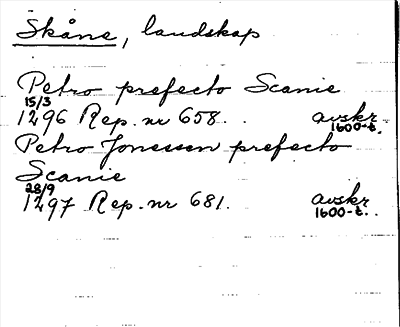 Skåne, landskap
Petro prefecto Scanie
15/3
1296 Rep. nr 658. . avskr
1600-t.
Petro Jonessen prefecto
Scanie
28/9
1297 Rep. nr 681. avskr
1600-t. .